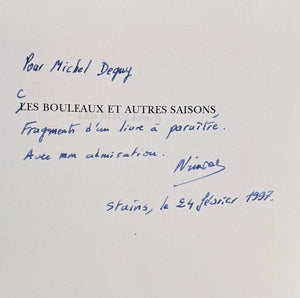 Pour Michel Deguy
C
LES BOULEAUX ET AUTRES SAISONS
Fragments d'un livre à paraître.
Avec mon admiration.
Stains, le 24 février 1997.